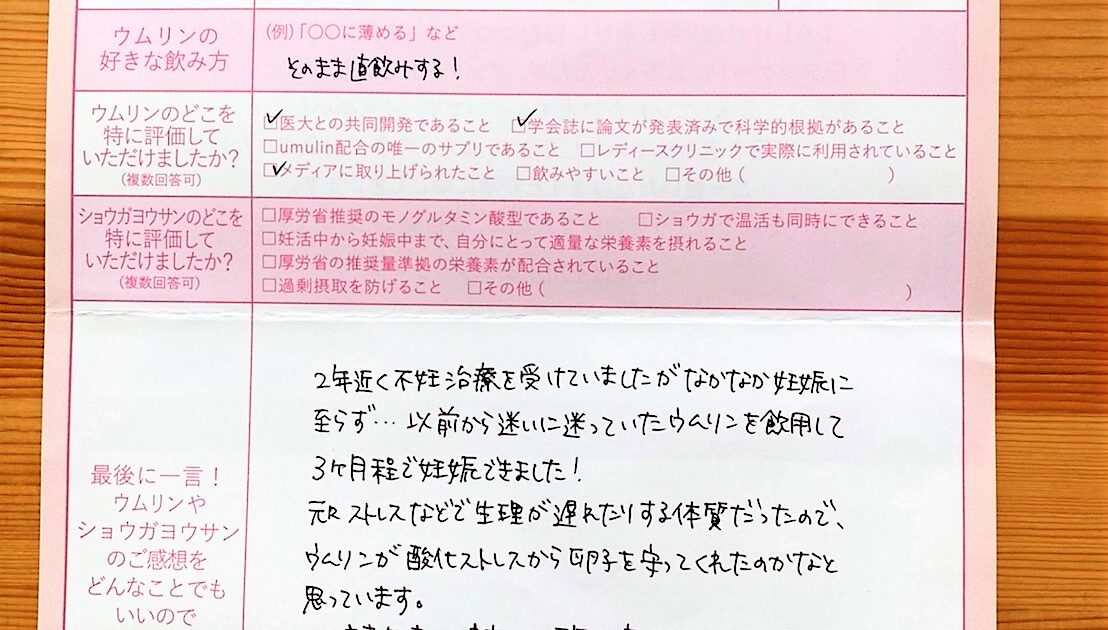 ウムリンの
好きな飲み方
(例)「〇〇に薄める」など
そのまま直飲みする!
ウムリンのどこを
特に評価して
いただけましたか?
(複数回答可)
☑医大との共同開発であること ☑学会誌に論文が発表済みで科学的根拠があること
□umulin配合の唯一のサプリであること □レディースクリニックで実際に利用されていること
☑メディアに取り上げられたこと □飲みやすいこと □その他( )
ショウガヨウサンのどこを
特に評価して
いただけましたか?
(複数回答可)
□厚労省推奨のモノグルタミン酸型であること □ショウガで温活も同時にできること
□妊活中から妊娠中まで、自分にとって適量な栄養素を摂れること
□厚労省の推奨量準拠の栄養素が配合されていること
□過剰摂取を防げること □その他( )
最後に一言!
ウムリンや
ショウガヨウサン
のご感想を
どんなことでも
いいので
2年近く不妊治療を受けていましたがなかなか妊娠に
至らず…以前から迷いに迷っていたウムリンを飲用して
3ヶ月程で妊娠できました!
元々ストレスなどで生理が遅れたりする体質だったので、
ウムリンが酸化ストレスから卵子を守ってくれたのかなと
思っています。